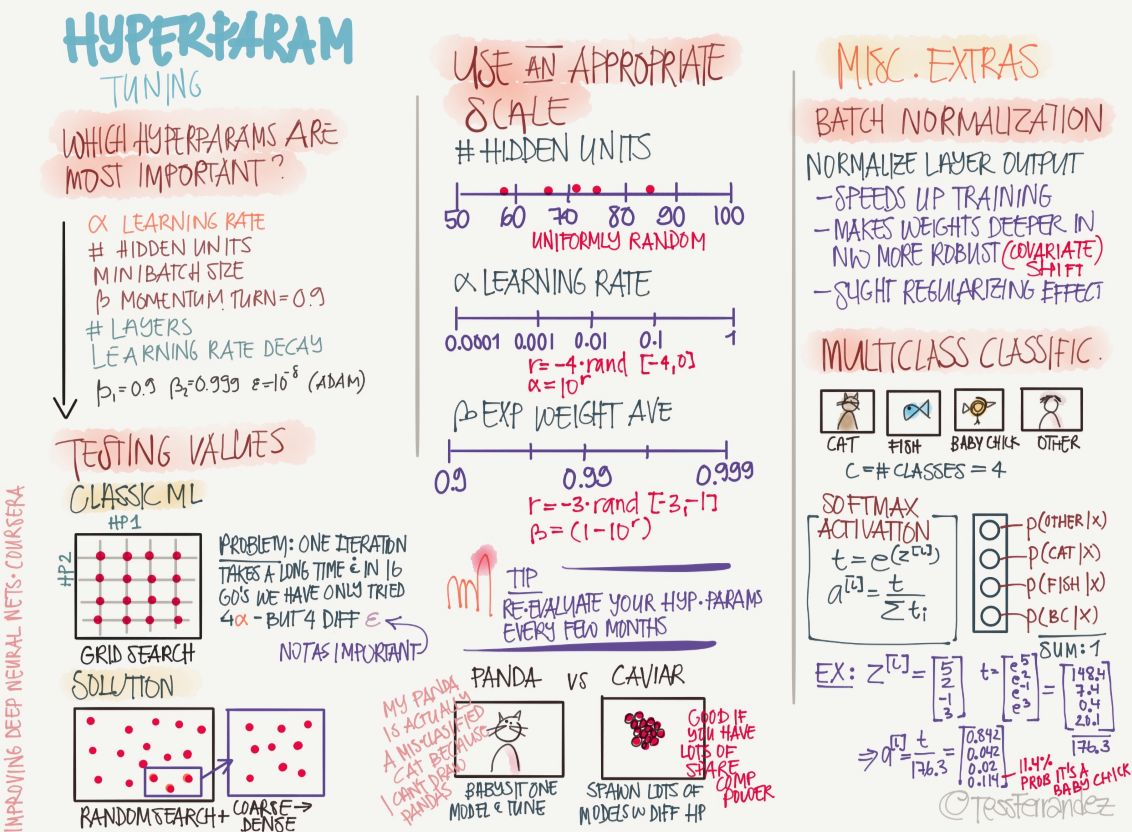 HYPERPARAM
TUNING
WHICH HYPERPARAMS ARE
MOST IMPORTANT?
α LEARNING RATE
# HIDDEN UNITS
MINIBATCH SIZE
β MOMENTUM TURN = 0.9
# LAYERS
LEARNING RATE DECAY
β₁=0.9 β₂=0.999 ε=10⁻⁸ (ADAM)
TESTING VALUES
CLASSIC ML
HP1
HP2
GRID SEARCH
PROBLEM: ONE ITERATION
TAKES A LONG TIME & IN 16
GO'S WE HAVE ONLY TRIED
4α - BUT 4 DIFF ε
NOT AS IMPORTANT
SOLUTION
RANDOM SEARCH +
COARSE →
DENSE
IMPROVING DEEP NEURAL NETS • COURSERA
USE AN APPROPRIATE
SCALE
# HIDDEN UNITS
50 60 70 80 90 100
UNIFORMLY RANDOM
α LEARNING RATE
0.0001 0.001 0.01 0.1 1
r = -4 • rand [-4,0]
α = 10ʳ
β EXP WEIGHT AVE
0.9 0.99 0.999
r = -3 • rand [-3,-1]
β = (1-10ʳ)
TIP
RE-EVALUATE YOUR HYP. PARAMS
EVERY FEW MONTHS
PANDA VS CAVIAR
MY PANDA
IS ACTUALLY
A MISCLASIFIED
CAT BECAUSE
I CAN'T DRAW
PANDAS
BABYSIT ONE
MODEL & TUNE
GOOD IF
YOU HAVE
LOTS OF
SPARE
COMP
POWER
SPAWN LOTS OF
MODELS W DIFF HP
MISC. EXTRAS
BATCH NORMALIZATION
NORMALIZE LAYER OUTPUT
- SPEEDS UP TRAINING
- MAKES WEIGHTS DEEPER IN
NW MORE ROBUST (COVARIATE)
SHIFT
- SLIGHT REGULARIZING EFFECT
MULTICLASS CLASSIFIC.
CAT FISH BABY CHICK OTHER
C = # CLASSES = 4
SOFTMAX
ACTIVATION
t = e^(z^[L])
a^[L] = t / Σ tᵢ
P(OTHER|X)
P(CAT|X)
P(FISH|X)
P(BC|X)
SUM: 1
EX: Z^[L] = [5 2 -1 3] t = [e⁵ e² e⁻¹ e³] = [148.4 7.4 0.4 20.1]
176.3
⇒ a^[L] = t / 176.3 = [0.842 0.042 0.02 0.114]
11.4%
PROB IT'S A
BABY CHICK
@TESSFERRANDEZ